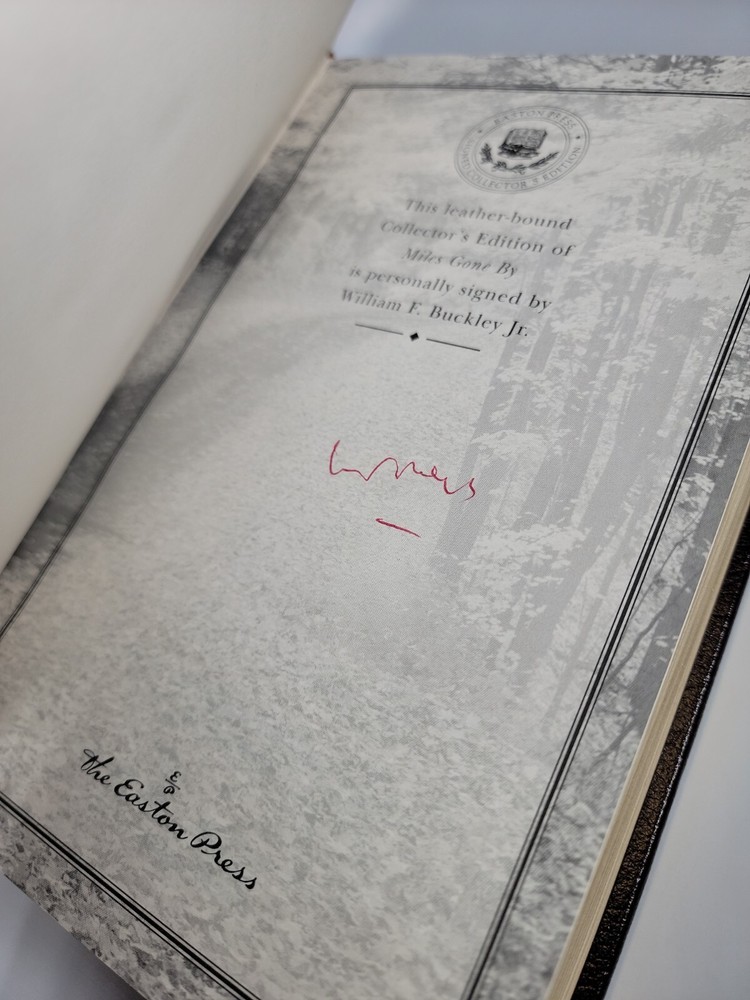 EASTON PRESS
This leather-bound
Collector's Edition of
Miles Gone By
is personally signed by
William F. Buckley Jr.
E
P
The Easton Press